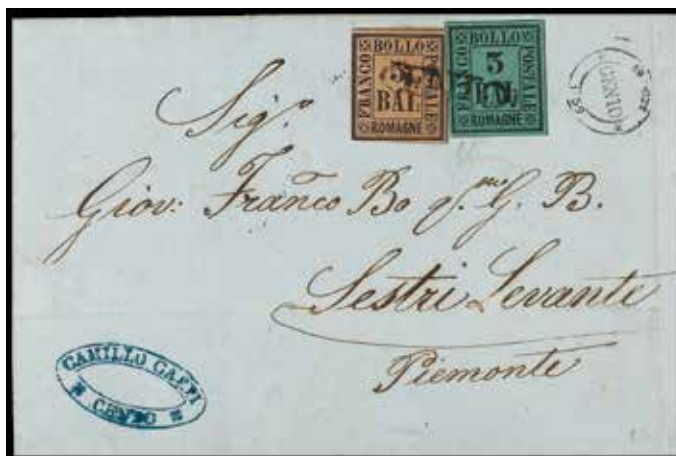 FRANCO BOLLO POSTALE ROMAGNE
5
BAI
FRANCO BOLLO POSTALE ROMAGNE
3
BAI
Sigr.
Giov: Franco Bo
G. B.
Sestri Levante
Piemonte
CAMILLO CARPI
CENTO